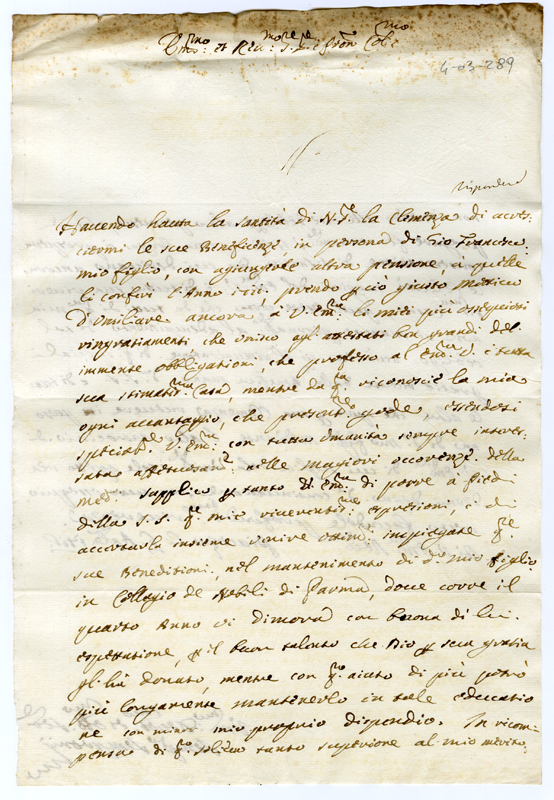 Em.mo et Rev.mo S.re e Pron Col.mo
4-03-289
Havendo hauta la Santità di N. S.re la Clemenza di accres-
ciermi le sue Beneficenze in persona di Gio Francesco
mio figlio, con agiungerle altra pensione, à quelle
li conferì l'Anno prendo p ciò giusto motivo
d'Umiliare ancora à V. Em.za li miei più ossequiosi
ringratiamenti che unisco agl' attestati ben grandi dell
immente obbligationi, che professo a l' Em.za V. e tutta
sua stimatis.ma Casa, mentre da q.ta riconosce la mia
ogni avantaggio, che presente gode, essendosi
special.te V. Em.za con tutta Umanità sempre interes-
sata affetuosam.te nelle magiori occorenze della
med.ma supplico p tanto V. Em.za di porre à piedi
della S. S. q.te mie riverentis.me espressioni, e di
accertarla insieme venire ottim.e impiegate q.te
sue Beneditioni, nel mantenimento di d.to mio figlio
in Collegio de Nobili di Parma, dove corre il
quarto Anno vi dimora con buona di lui
espettatione, p il buon talento che Dio p sua gratia
gl' hà donato, mentre con q.to aiuto di più potrò
più longamente mantenerlo in tale educatio
ne con minor mio proprio dispendio. In ricom-
pensa di q.to tanto superiore al mio merito,